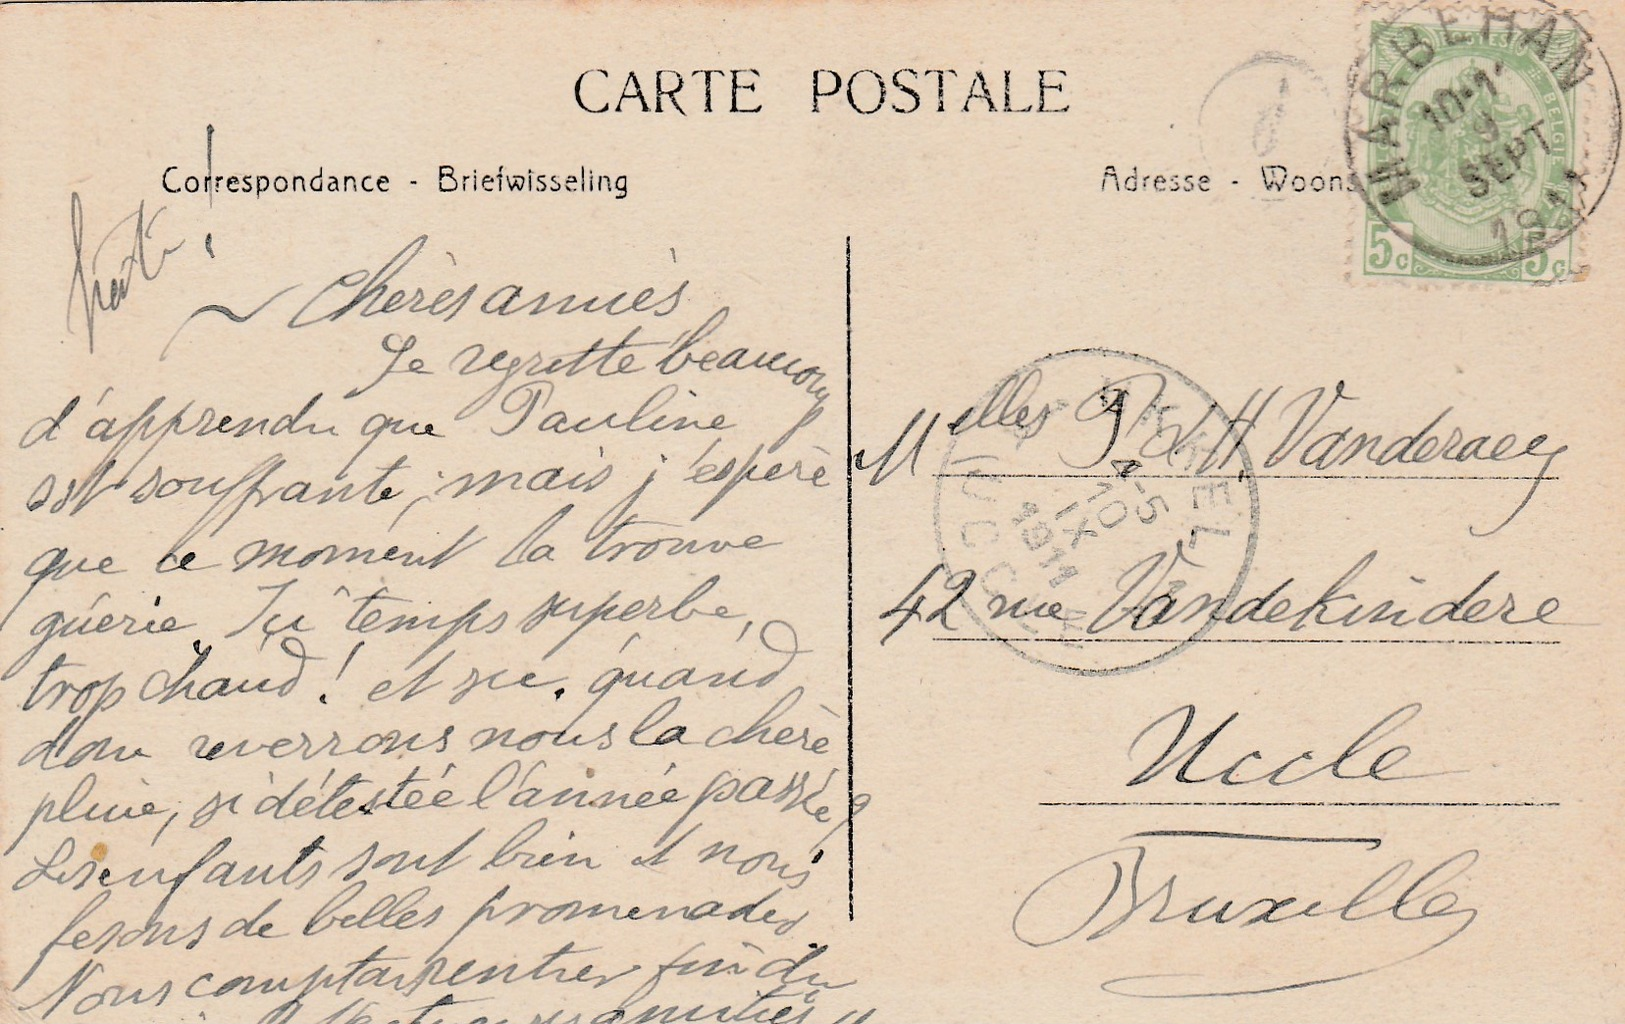 CARTE POSTALE
Correspondance - Briefwisseling
Adresse - Woons
MARBEHAN
10-1
9
SEPT
191
5c 5c
Chères amies
Je regrette beaucoup
d'apprendre que Pauline
est souffrante; mais j'espère
que ce moment la trouve
guérie. Ici temps superbe,
trop chaud! et sec. quand
donc reverrons nous la chère
pluie, si détestée l'année passée?
Les enfants sont bien et nous
fesons de belles promenades
Nous comptons rentrer fin du
amitiés
Melles P & H Vanderaey
42 rue Vandekindere
Uccle
Bruxelles
UKKEL
4-5
10
IX
1911
UCCLE